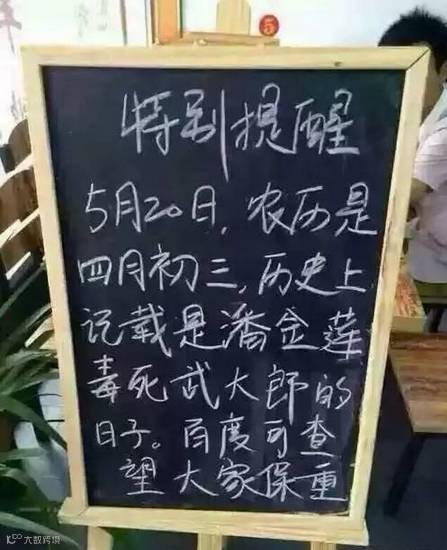 5
特别提醒
5月20日，农历是
四月初三，历史上
记载是潘金莲
毒死武大郎的
日子。百度可查
望大家保重
大数跨境